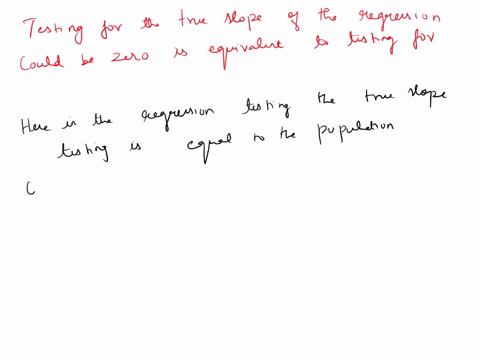 Testing for the true slope of the regression
Could be zero is equivalent to testing for
Here in the regression testing the true slope
testing is equal to the population
(